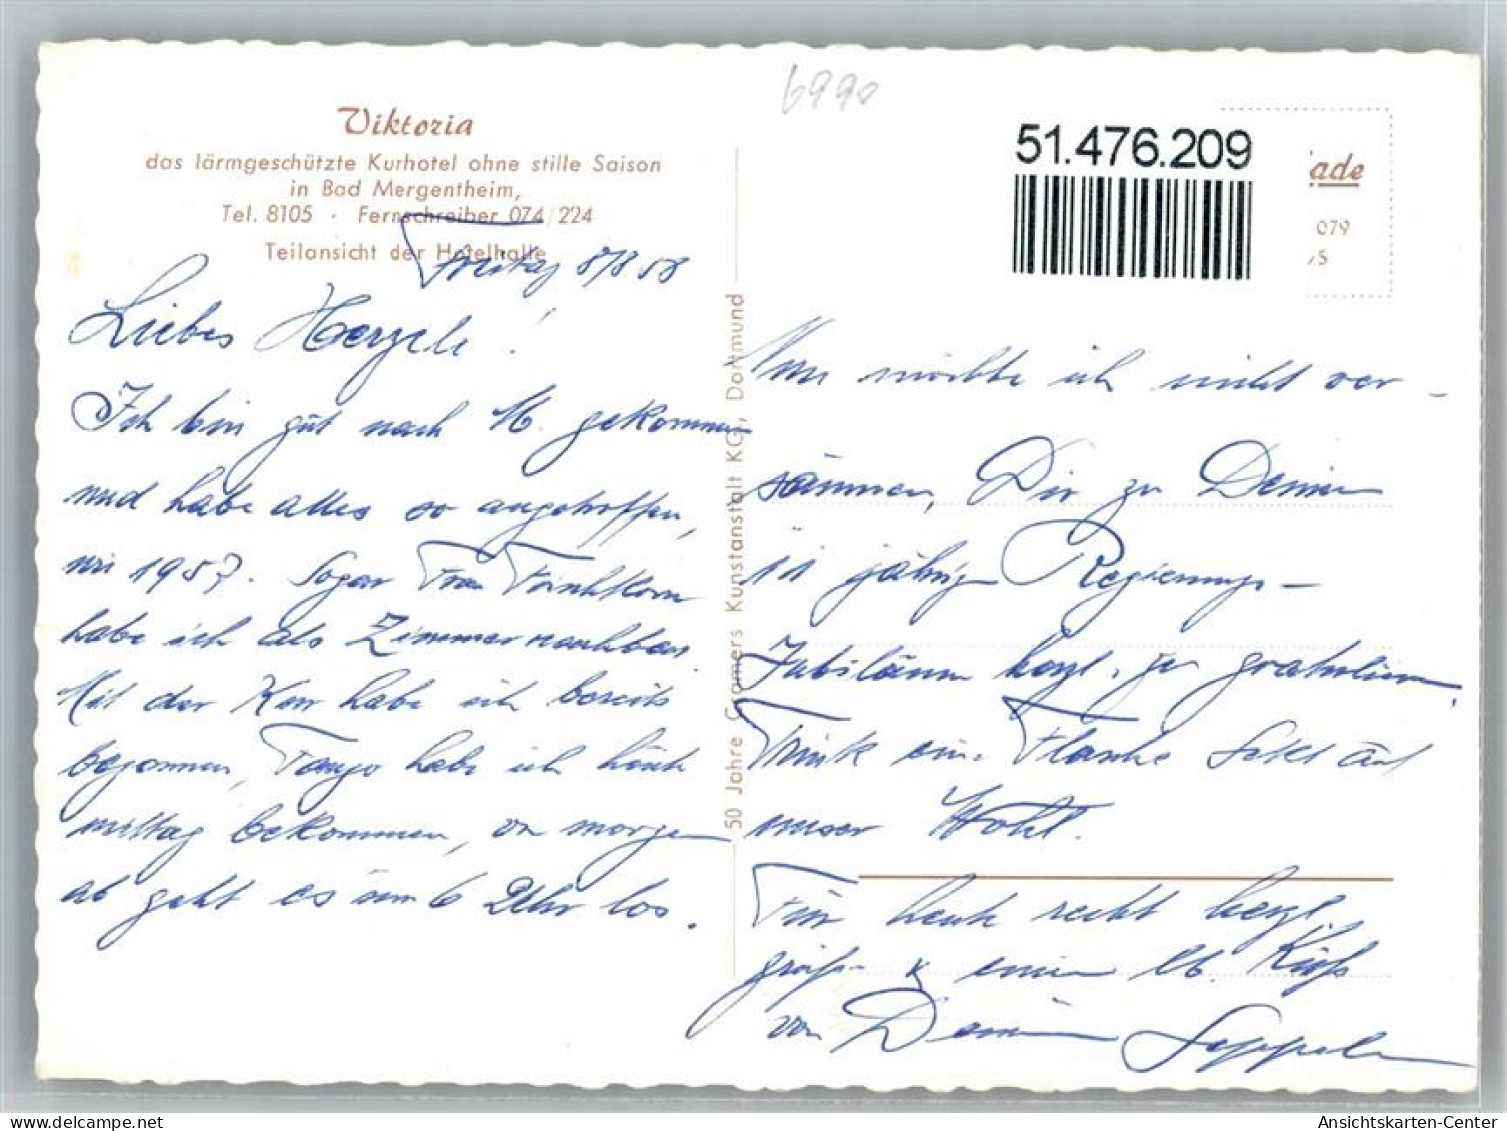 6990
Viktoria
das lärmgeschützte Kurhotel ohne stille Saison
in Bad Mergentheim,
Tel. 8105 · Fernschreiber 074/224
Teilansicht der Hotelhalle
Freitag 8/8 58
Liebes Herzele!
Ich bin gut nach M. gekommen
und habe alles so angetroffen,
wie 1957. Sogar Frau
habe ich als Zimmernachbar.
Mit der Kur habe ich bereits
begonnen, Tango habe ich heute
mittag bekommen, von morgen
ab geht es um 6 Uhr los.
50 Jahre Cramers Kunstanstalt KG, Dortmund
51.476.209
ade
079
/5
Nun möchte ich nicht ver-
säumen, Dir zu Deinem
jährigen Regierungs-
Jubiläum herzl. zu gratulieren.
Trink eine Flasche Sekt auf
unser Wohl.
Für heute recht herzl.
Grüße & einen lb. Kuß
von Deinem Seppele
Ansichtskarten-Center